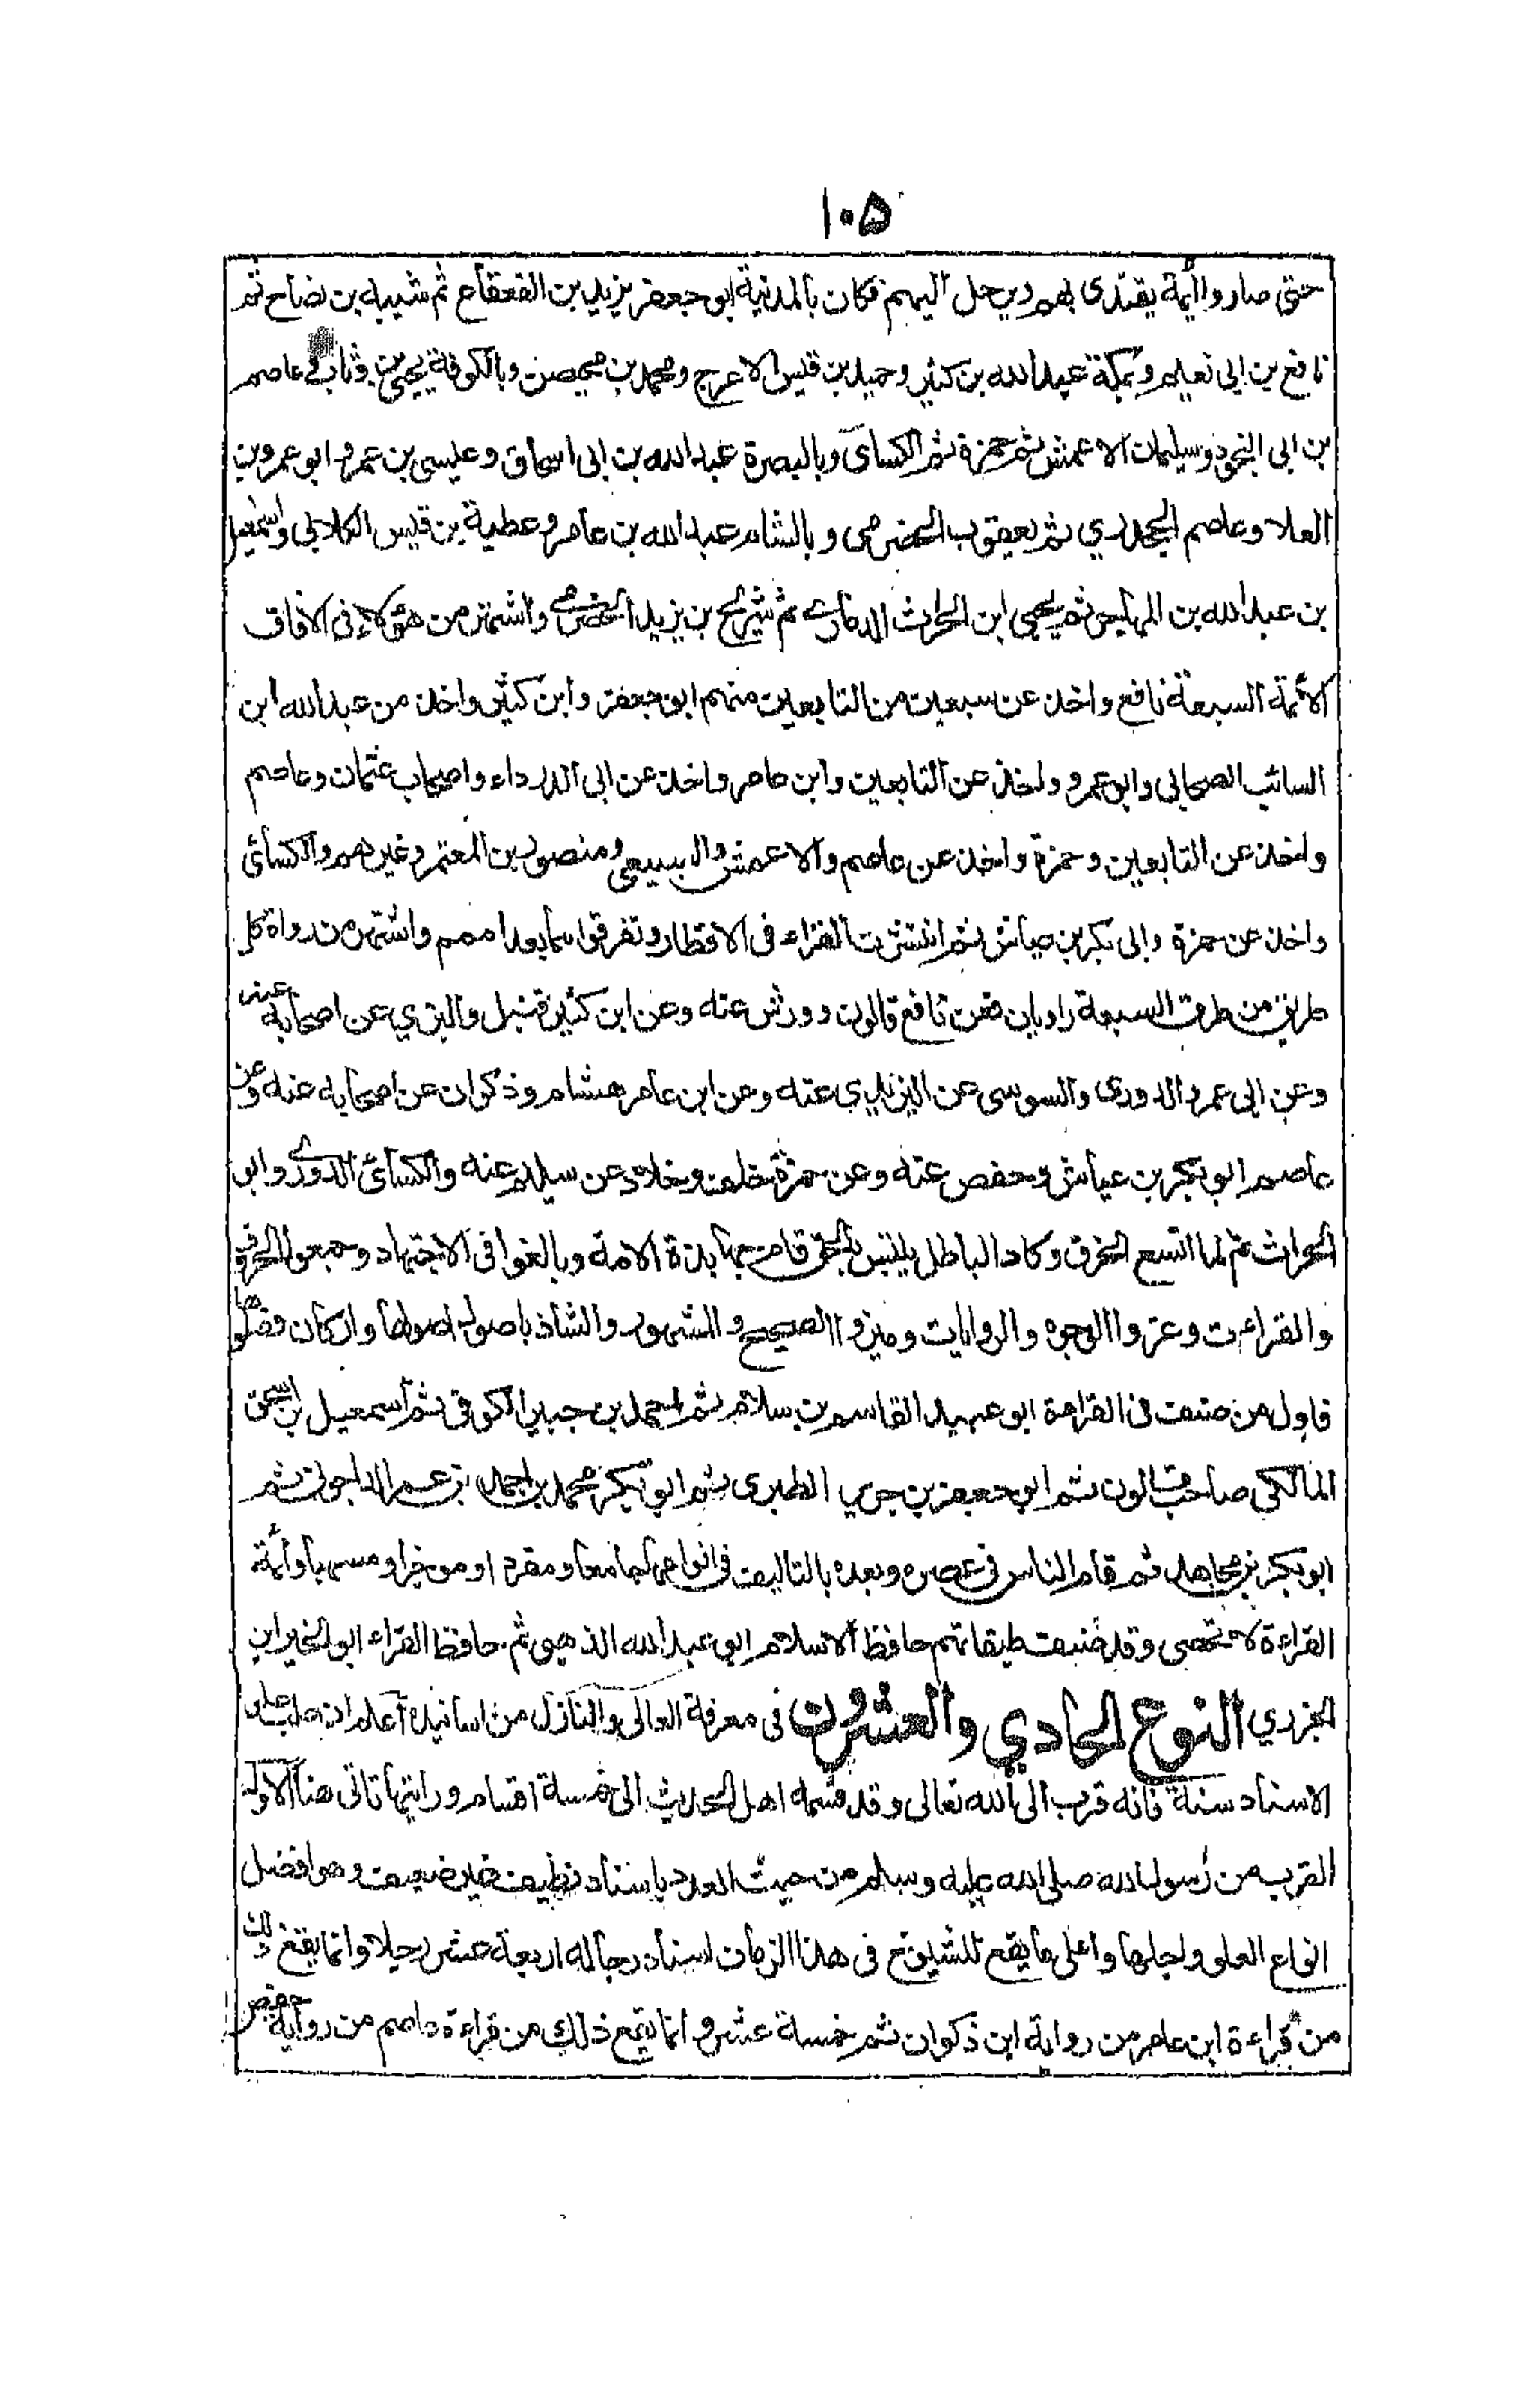 ١٠٥
حتى صاروا أئمة يقتدى بهم ويرحل اليهم فكان بالمدينة ابو جعفر يزيد بن القعقاع ثم شيبة بن نضاح ثم
نافع بن ابى نعيم وبمكة عبدالله بن كثير وحميد بن قيس الاعرج ومحمد بن محيصن وبالكوفة يحيى بن وثاب وعاصم
بن ابى النجود وسليمان الاعمش ثم حمزة ثم الكسائى وبالبصرة عبدالله بن ابى اسحاق وعيسى بن عمرو وابو عمرو بن
العلا وعاصم الجحدري ثم يعقوب الحضرمى وبالشام عبدالله بن عامر وعطية بن قيس الكلابى واسمعيل
بن عبدالله بن المهاجر ثم يحيى ابن الحراث الذمارى ثم شريح بن يزيد الحضرمى واشتهر من هؤلاء فى الافاق
الأئمة السبعة نافع واخذ عن سبعين من التابعين منهم ابو جعفر وابن كثير واخذ من عبدالله ابن
السائب الصحابى وابو عمرو واخذ عن التابعين وابن عامر واخذ عن ابى الدرداء واصحاب عثمان وعاصم
واخذ عن التابعين وحمزة واخذ عن عاصم والاعمش والسبيعى ومنصور بن المعتمر وغيرهم والكسائى
واخذ عن حمزة وابى بكر بن عياش ثم انتشرت القراء فى الاقطار وتفرقوا امما بعد امم واشتهر من رواة كل
طريق من طرق السبعة راويان فعن نافع قالون وورش عنه وعن ابن كثير قنبل والبزي عن اصحابه عنه
وعن ابى عمرو الدورى والسوسى عن اليزيدي عنه وعن ابن عامر هشام وذكوان عن اصحابه عنه وعن
عاصم ابو بكر بن عياش وحفص عنه وعن حمزة خلف وخلاد عن سليم عنه والكسائى الدورى وابو
الحراث ثم لما اتسع الخرق وكاد الباطل يلتبس بالحق قام جهابذة الامة وبالغوا فى الاجتهاد وجمعوا الحروف
والقراءت وعزوا الوجوه والروايات وميزوا الصحيح والمشهور والشاذ باصول اصولها واركان فصلوها
فاول من صنف فى القراءة ابو عبيد القاسم بن سلام ثم احمد بن جبير الكوفى ثم اسمعيل بن اسحق
المالكى صاحب قالون ثم ابو جعفر بن جرير الطبرى ثم ابو بكر محمد بن احمد بن عمر الداجونى ثم
ابو بكر بن مجاهد ثم قام الناس فى عصره وبعده بالتاليف فى انواعها جامعا ومفردا وموجزا ومسهبا وأئمة
القراءة لا تحصى وقد صنف طبقاتهم حافظ الاسلام ابو عبدالله الذهبى ثم حافظ القراء ابو الخير ابن
الجزري النوع الحادي والعشرون فى معرفة العالى والنازل من اسانيده اعلم ان طلب على
الاسناد سنة فانه قرب الى الله تعالى وقد قسمه اهل الحديث الى خمسة اقسام ورايتها تاتى هنا الاول
القرب من رسول الله صلى الله عليه وسلم من حيث العدد باسناد نظيف غير ضعيف وهو افضل
انواع العلو واجلها واعلى ما يقع للشيوخ فى هذا الزمان اسناد رجاله اربعة عشر رجلا وانما يقع ذلك
من قراءة ابن عامر من رواية ابن ذكوان ثم خمسة عشر وانما يقع ذلك من قراءة عاصم من رواية حفص